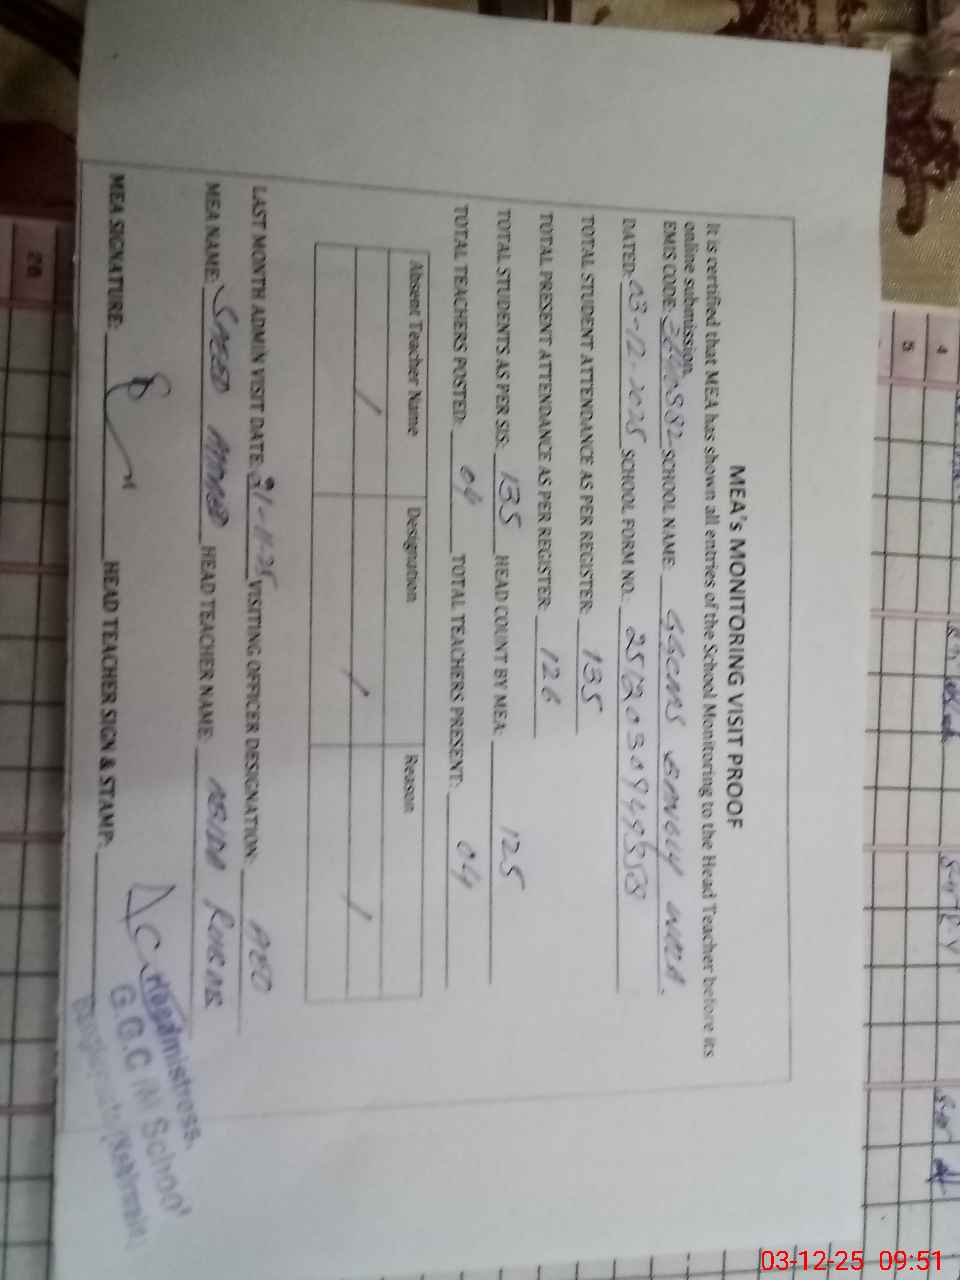 MEA's MONITORING VISIT PROOF
It is certified that MEA has shown all entries of the School Monitoring to the Head Teacher before its
online submission.
EMIS CODE: SCHOOL NAME: GGCMS
DATED: 03-12-2025 SCHOOL FORM NO.:
TOTAL STUDENT ATTENDANCE AS PER REGISTER: 135
TOTAL PRESENT ATTENDANCE AS PER REGISTER: 126
TOTAL STUDENTS AS PER SIS: 135 HEAD COUNT BY MEA: 125
TOTAL TEACHERS POSTED: 04 TOTAL TEACHERS PRESENT: 04
Absent Teacher Name Designation Reason
/ / /
LAST MONTH ADMIN VISIT DATE: VISITING OFFICER DESIGNATION: AEO
MEA NAME: AHMED HEAD TEACHER NAME:
MEA SIGNATURE: HEAD TEACHER SIGN & STAMP:
Headmistress,
G.G.C (M) School
4
5
26
03-12-25 09:51